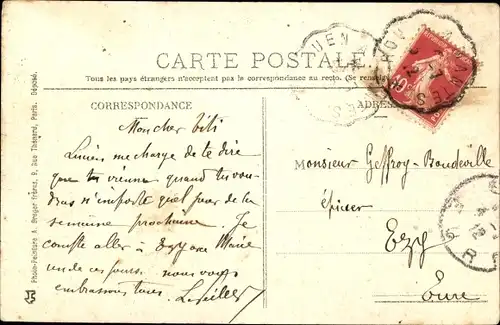 CARTE POSTALE
Tous les pays étrangers n'acceptent pas la correspondance au recto. (Se renseigner
CORRESPONDANCE
ADRES
Mon cher
Lucien me charge de te dire
que tu viennes quand tu vou-
dras n'importe quel jour de la
semaine prochaine. Je
compte aller à Ezy avec Marie
un de ces jours. nous vous
embrassons tous.
Monsieur Geffroy-Boudeville
épicier
Ezy
Eure
Photo-Peinture A. Breger frères, 9, Rue Thénard, Paris. Déposé.